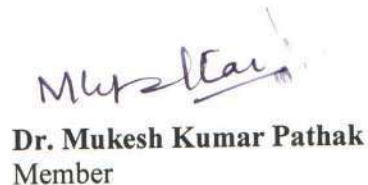 Dr. Mukesh Kumar Pathak
Member